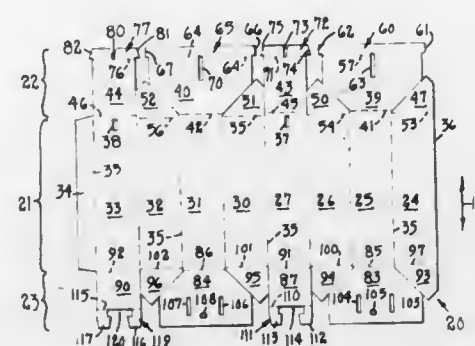 80 77 81 64 65 66 75 73 72 62 60 61
82 76 67 70 64 71 74 57 63
22 44 52 40 51 43 50 39 47
46 56 42 55 45 54 41 53
38 37 36
35
34
21 33 32 31 30 27 26 25 24
35 35 35
92 102 86 101 91 100 85 97
90 96 84 95 87 94 83 93
23 115 107 108 106 110 104 105 103
117 120 116 119 111 113 114 112 20